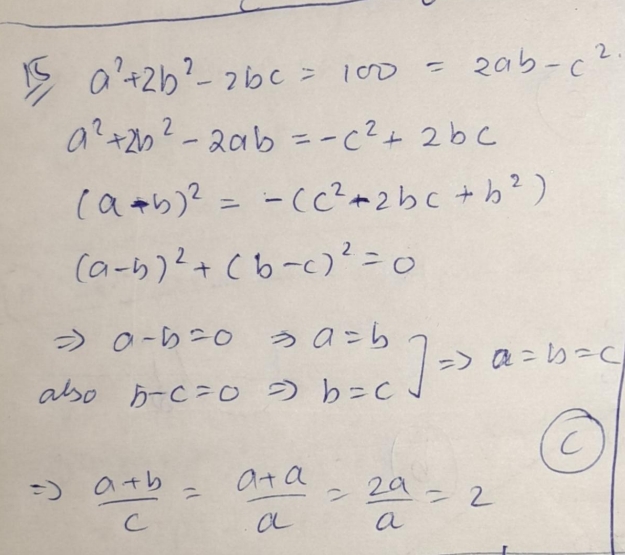 15 a²+2b²-2bc = 100 = 2ab-c².
a²+2b²-2ab = -c²+2bc
(a-b)² = -(c²-2bc+b²)
(a-b)²+(b-c)²=0
⇒ a-b=0 ⇒ a=b
⇒ a=b=c
also b-c=0 ⇒ b=c
C
⇒ \frac{a+b}{c} = \frac{a+a}{a} = \frac{2a}{a} = 2